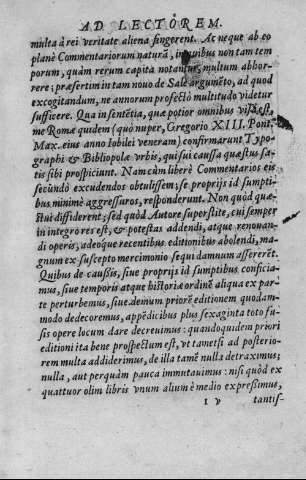 AD LECTOREM.
multa à rei veritate aliena fingerent. Ac neque ab eo
planè Commentariorum naturā, in quibus non tam tem
porum, quàm rerum capita notantur, multum abhor-
rere; præsertim in tam nouo de Sale argumēto, ad quod
excogitandum, ne annorum profectò multitudo videtur
sufficere. Qua in sentētia, quæ potior omnibus visa est,
me Romæ quidem (quò nuper, Gregorio XIII. Pont.
Max. eius anno Iobilei veneram) confirmarunt Typo-
graphi & Bibliopolæ vrbis, qui sui caussa quæstus sa-
tis sibi prospiciunt. Nam cùm liberè Commentarios eis
secūndò excudendos obtulissem; se proprijs id sumpti-
bus minimè aggressuros, responderunt. Non quòd quæ-
stui diffiderent; sed quòd Autore superstite, cui semper
in integro res est, & potestas addendi, atque renouan-
di operis, adeóque recentibus editionibus abolendi, ma-
gnum ex suscepto mercimonio sequi damnum assereret.
Quibus de caussis, siue proprijs id sumptibus conficia-
mus, siue temporis atque historiæ ordinē aliqua ex par-
te perturbemus, siue demum priorē editionem quodam-
modo dedecoremus, appēdicibus plus sexaginta toto fu-
sis opere locum dare decreuimus: quandoquidem priori
editioni ita bene prospectum est, vt tametsi ad posterio-
rem multa addiderimus, de illa tamē nulla detraximus;
nulla, aut perquàm pauca immutauimus: nisi quòd ex
quattuor olim libris vnum alium è medio expressimus,
I v tantis-